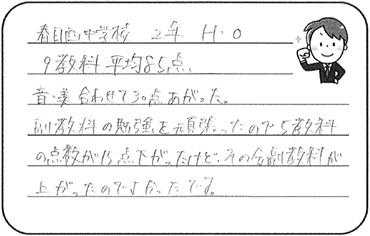 春日西中学校 2年 H・O
9教科平均85点、
音・美合わせて30点あがった。
副教科の勉強を頑張ったので5教科
の点数が15点下がったけど、その分副教科が
上がったのでよかったです。